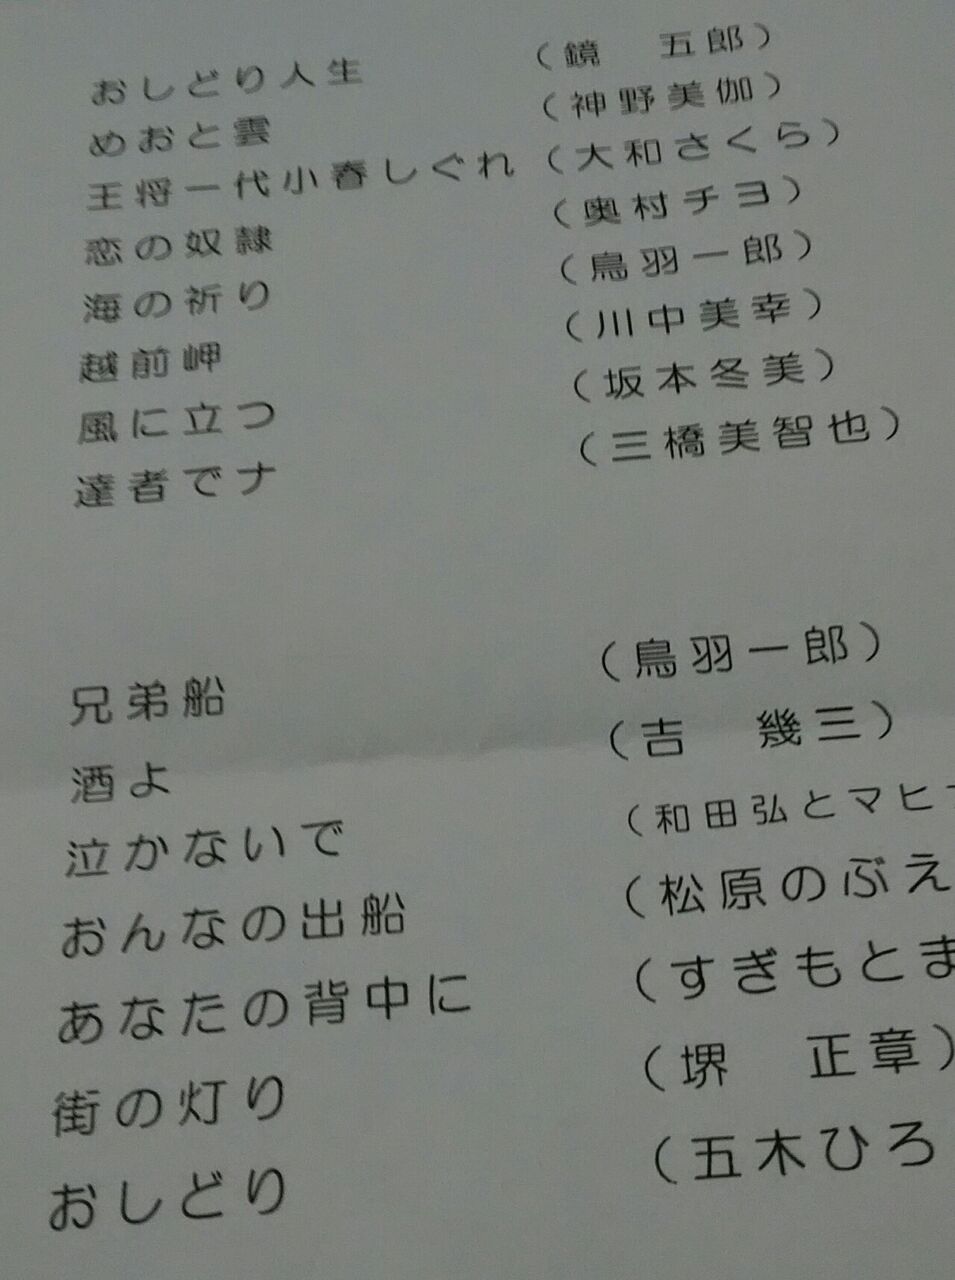 おしどり人生　（鏡　五郎）
めおと雲　（神野美伽）
王将一代小春しぐれ（大和さくら）
恋の奴隷　（奥村チヨ）
海の祈り　（鳥羽一郎）
越前岬　（川中美幸）
風に立つ　（坂本冬美）
達者でナ　（三橋美智也）
兄弟船　（鳥羽一郎）
酒よ　（吉　幾三）
泣かないで　（和田弘とマヒ
おんなの出船　（松原のぶえ
あなたの背中に　（すぎもとま
街の灯り　（堺　正章）
おしどり　（五木ひろ